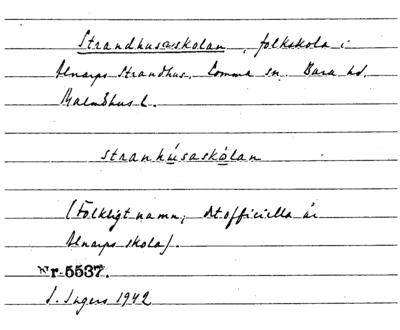 Strandhusaskolan, folkskola i
Alnarps Strandhus. Lomma sn. Bara hd.
Malmöhus l.
stranhúsaskólan
(Folkligt namn; det officiella är
Alnarps skola).
Nr 5537.
I. Ingers 1942